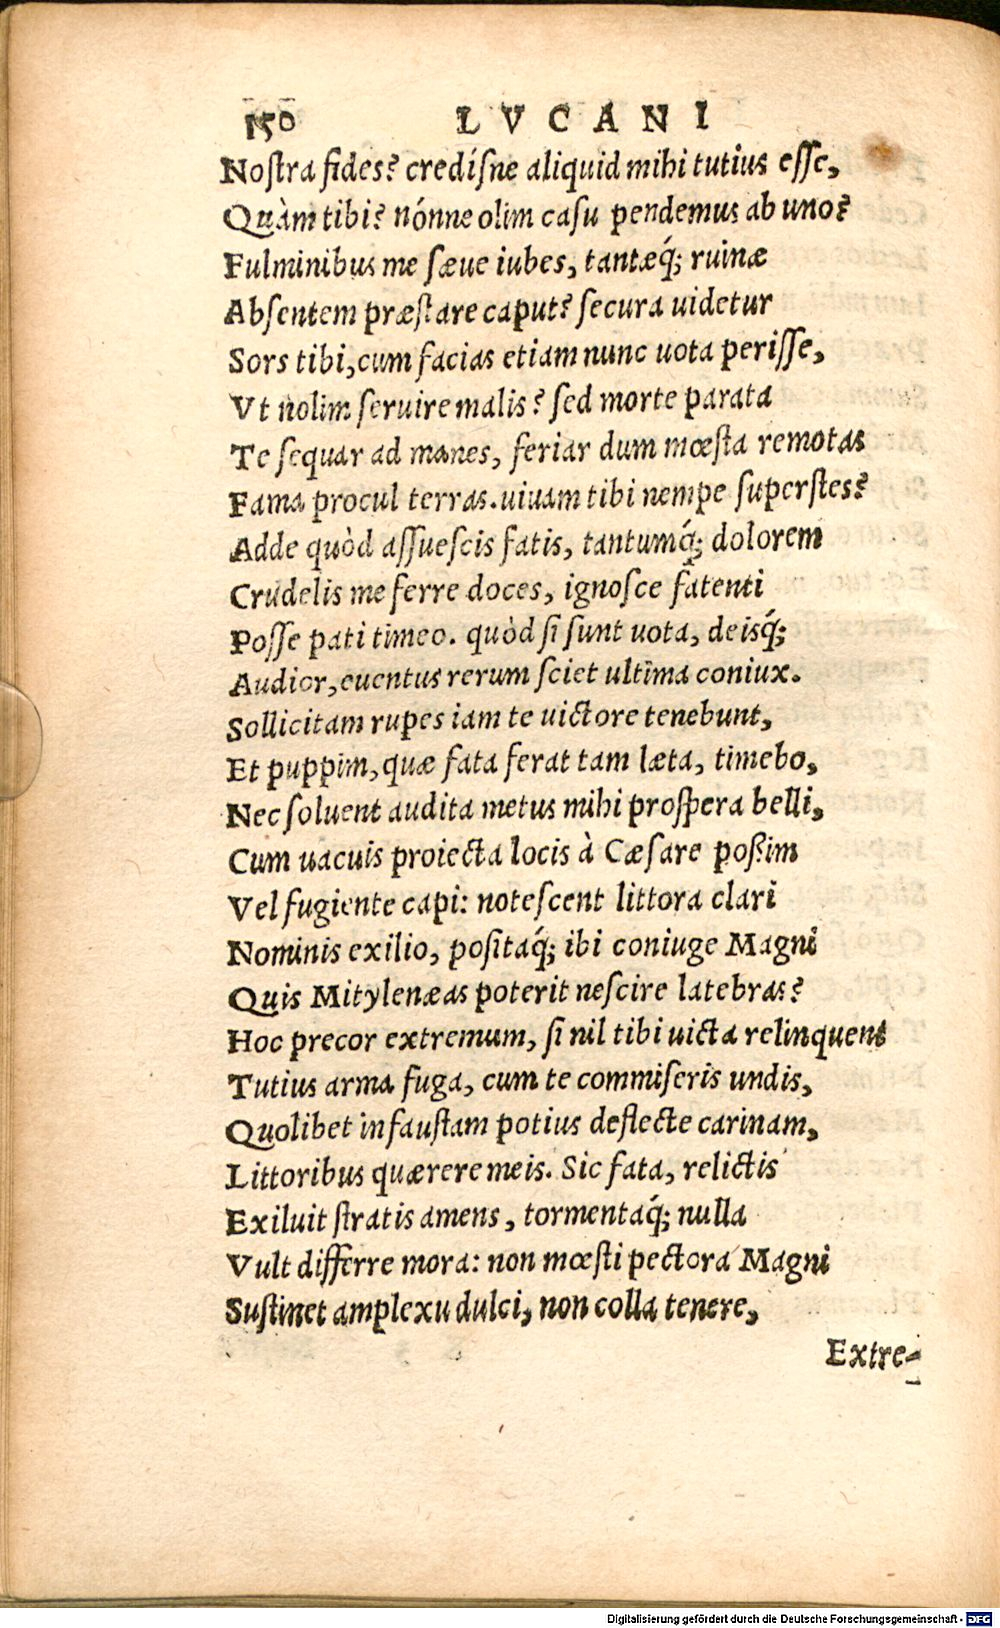 150 LVCANI
Nostra fides? credísne aliquid mihi tutius esse,
Quàm tibi? nónne olim casu pendemus ab uno?
Fulminibus me sæue iubes, tantæq́; ruinæ
Absentem præstare caput? secura uidetur
Sors tibi, cum facias etiam nunc uota perisse,
Vt nolim seruire malis? sed morte parata
Te sequar ad manes, feriar dum mœsta remotas
Fama procul terras. uiuam tibi nempe superstes?
Adde quòd assuescis fatis, tantumq́; dolorem
Crudelis me ferre doces, ignosce fatenti
Posse pati timeo. quòd si sunt uota, deisq́;
Audior, euentus rerum sciet ultima coniux.
Sollicitam rupes iam te uictore tenebunt,
Et puppim, quæ fata ferat tam læta, timebo,
Nec soluent audita metus mihi prospera belli,
Cum uacuis proiecta locis à Cæsare poßim
Vel fugiente capi: notescent littora clari
Nominis exilio, positaq́; ibi coniuge Magni
Quis Mitylenæas poterit nescire latebras?
Hoc precor extremum, si nil tibi uicta relinquent
Tutius arma fuga, cum te commiseris undis,
Quolibet infaustam potius deflecte carinam,
Littoribus quærere meis. Sic fata, relictis
Exiluit stratis amens, tormentaq́; nulla
Vult differre mora: non mœsti pectora Magni
Sustinet amplexu dulci, non colla tenere,
Extre-
Digitalisierung gefördert durch die Deutsche Forschungsgemeinschaft - DFG